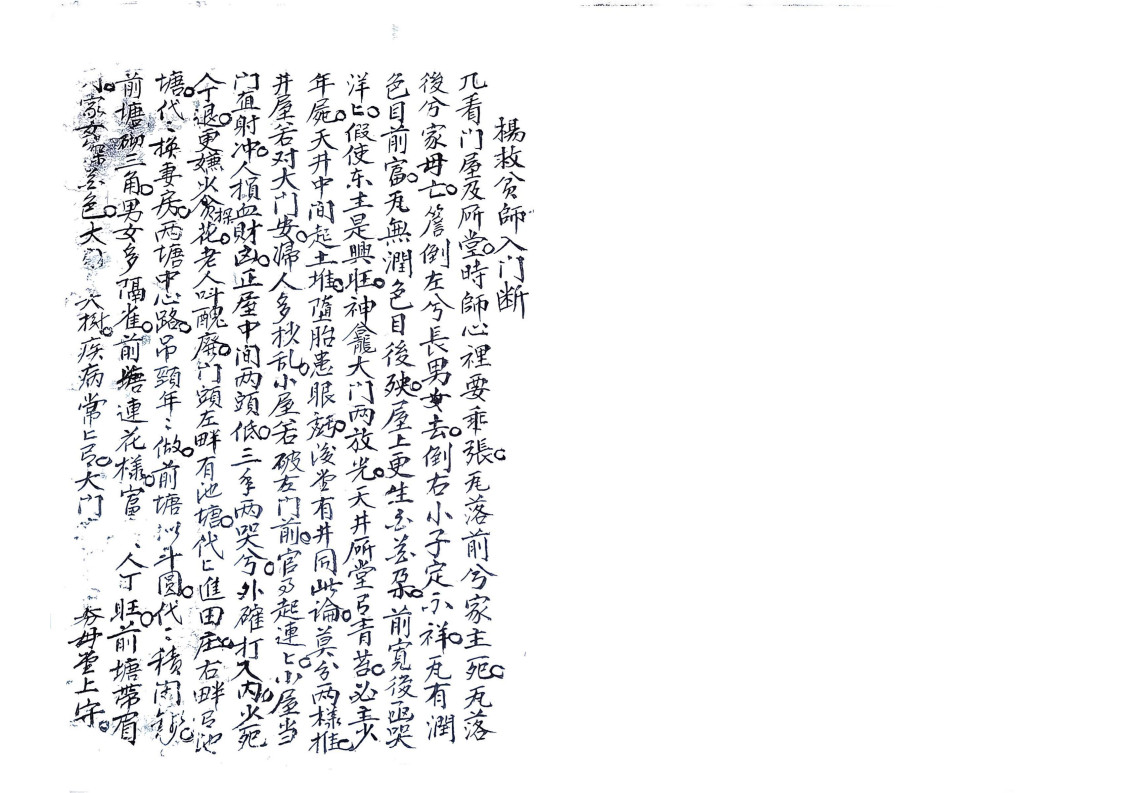 楊救貧師入门断
凢看门屋及所堂時師心裡要乖張瓦落前兮家主死瓦落
後兮家母亡簷倒左兮長男女去倒右小子定不祥瓦有潤
色目前富瓦無潤色目後殃屋上更生五花朶前寬後亟哭
洋ヒ假使东主是興旺神龕大门两放光天井所堂㠯青苔必主少
年屍天井中间起土堆墮胎患眼
後堂有井同此論莫分两様推
井屋若对大门安溺人多抄乱小屋若破左门前官司起連ヒ小屋当
门直射冲人損血財凶正屋中间两頭低三年两哭兮外碓打入内火死
人丁退更嫌火貪花老人叫醜廢门頭左畔有池塘代ヒ進田庄右畔㠯池
塘代〻换妻房两塘中心路吊頸年〻做前塘似斗圆代〻積闲錢
前塘砌三角男女多隔雀前塘連花様富〻人丁旺前塘帶眉
家女 花色大门 大樹疾病常ヒ㠯大门 母堂上守